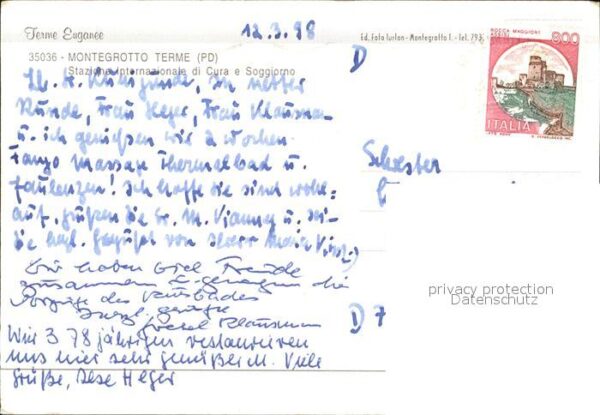 Terme Euganee
12.3.98
Ed. Foto Turlon - Montegrotto T. - Tel. 793
35036 - MONTEGROTTO TERME (PD)
Stazione Internazionale di Cura e Soggiorno
D
ROCCA MAGGIORE
800
ITALIA
Lb. Sr. in netter
Runde, Frau Heger, Frau Klausmann
u. ich genießen wir 2 Wochen
Fango Massage Thermalbad u.
faulenzen! Ich hoffe Sie sind wohl-
auf. grüßen Sie Sr. M. Vianney u. sei-
en Sie herzl. gegrüßt von Ihrer Maria
Schwester
Wir haben viel Freude
zusammen u. genießen die
Vorzüge des Kurbades
Herzl. Grüße
Klausmann
D 7
Wir 3 78 jährigen restaurieren
uns hier sehr genüßlich. Viele
Grüße, Ilse Heger
privacy protection
Datenschutz